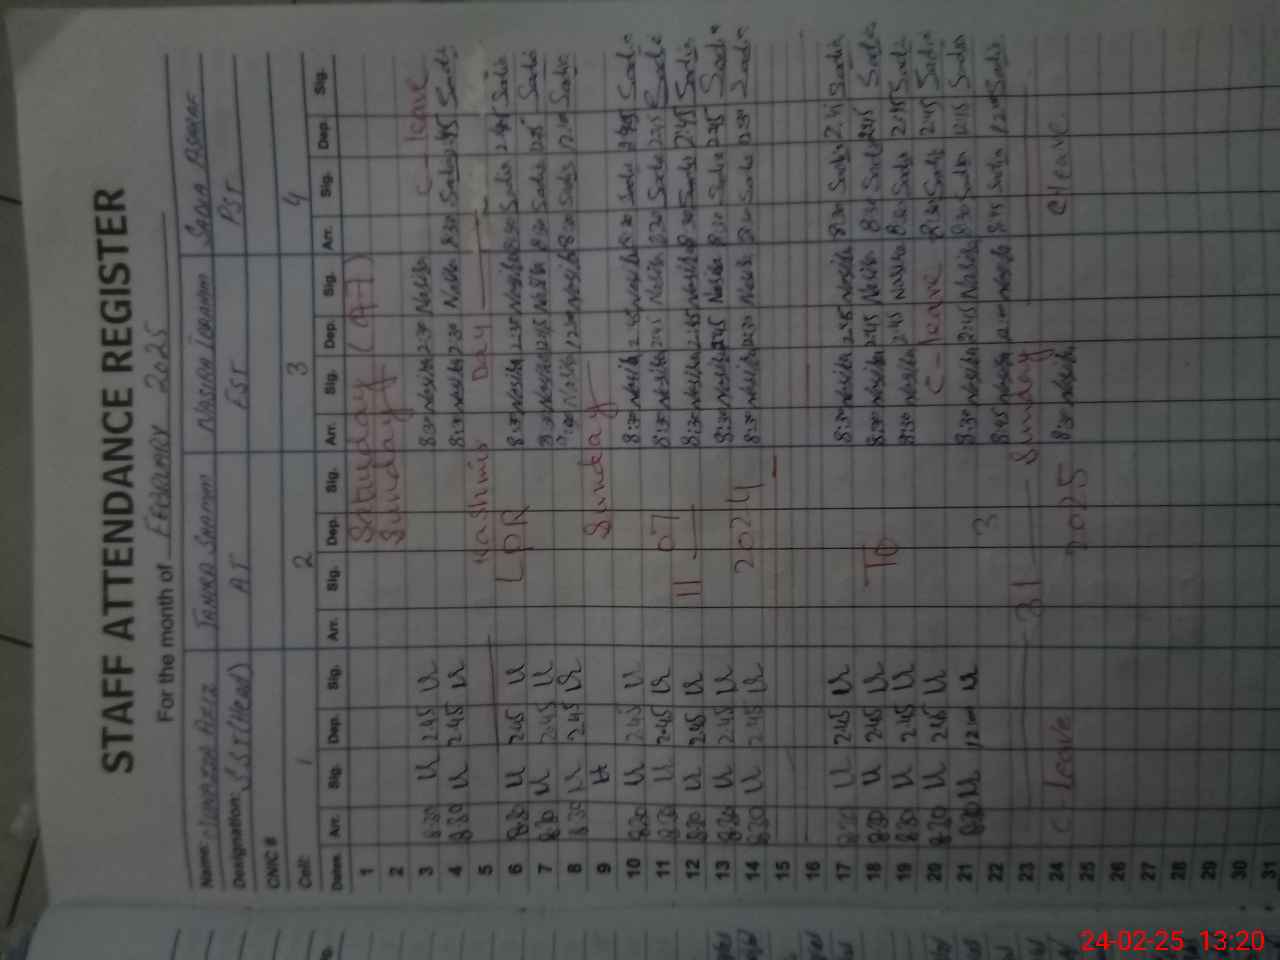 STAFF ATTENDANCE REGISTER
For the month of February 2025
Name: Designation: CNIC # Cell:
SST (Head) AT EST PST
1 2 3 4
Dates Arr. Sig. Dep. Sig. Arr. Sig. Dep. Sig. Arr. Sig. Dep. Sig. Arr. Sig. Dep. Sig.
1 Saturday
2 Sunday
3 8:30 U 2.45 U 8:30 Nasiba 2:30 Nasiba C-leave
4 8:30 U 2.45 U 8:30 Nasiba 2:30 Nasiba 8:30 Sadia 2:45 Sadia
5 Kashmir Day
6 8:30 U 2.45 U LPR 8:30 Nasiba 2:30 Nasiba 8:30 Sadia 2:45 Sadia
7 8:30 U 2.45 U 8:30 Nasiba Nasiba 8:30 Sadia Sadia
8 8:30 U 2.45 U Nasiba Nasiba 8:30 Sadia Sadia
9 U Sunday
10 8:30 U 2.45 U 8:30 Nasiba 2:45 Nasiba 8:30 Sadia 2:45 Sadia
11 8:30 U 2.45 U 07 8:30 Nasiba 2:45 Nasiba 8:30 Sadia 2:45 Sadia
12 8:30 U 2.45 U 11 8:30 Nasiba 2:45 Nasiba 8:30 Sadia 2:45 Sadia
13 8:30 U 2.45 U 8:30 Nasiba 2:45 Nasiba 8:30 Sadia 2:45 Sadia
14 8:30 U 2.45 U 2024 8:30 Nasiba 12:30 Nasiba 8:30 Sadia 12:30 Sadia
15
16
17 8:30 U 2.45 U 8:30 Nasiba 2:45 Nasiba 8:30 Sadia 2:45 Sadia
18 8:30 U 2.45 U To 8:30 Nasiba 2:45 Nasiba 8:30 Sadia 2:45 Sadia
19 8:30 U 2.45 U 8:30 Nasiba 2:45 Nasiba 8:30 Sadia 2:45 Sadia
20 8:30 U 2.45 U C-leave 8:30 Sadia 2:45 Sadia
21 8:30 U 12:00 U 8:30 Nasiba Nasiba 8:30 Sadia Sadia
22 3 8:45 Nasiba 12:00 Nasiba 8:45 Sadia 12:00 Sadia
23 31 Sunday
24 C-leave 8:30 Nasiba C-leave
25 2025
26
27
28
29
30
31
24-02-25 13:20